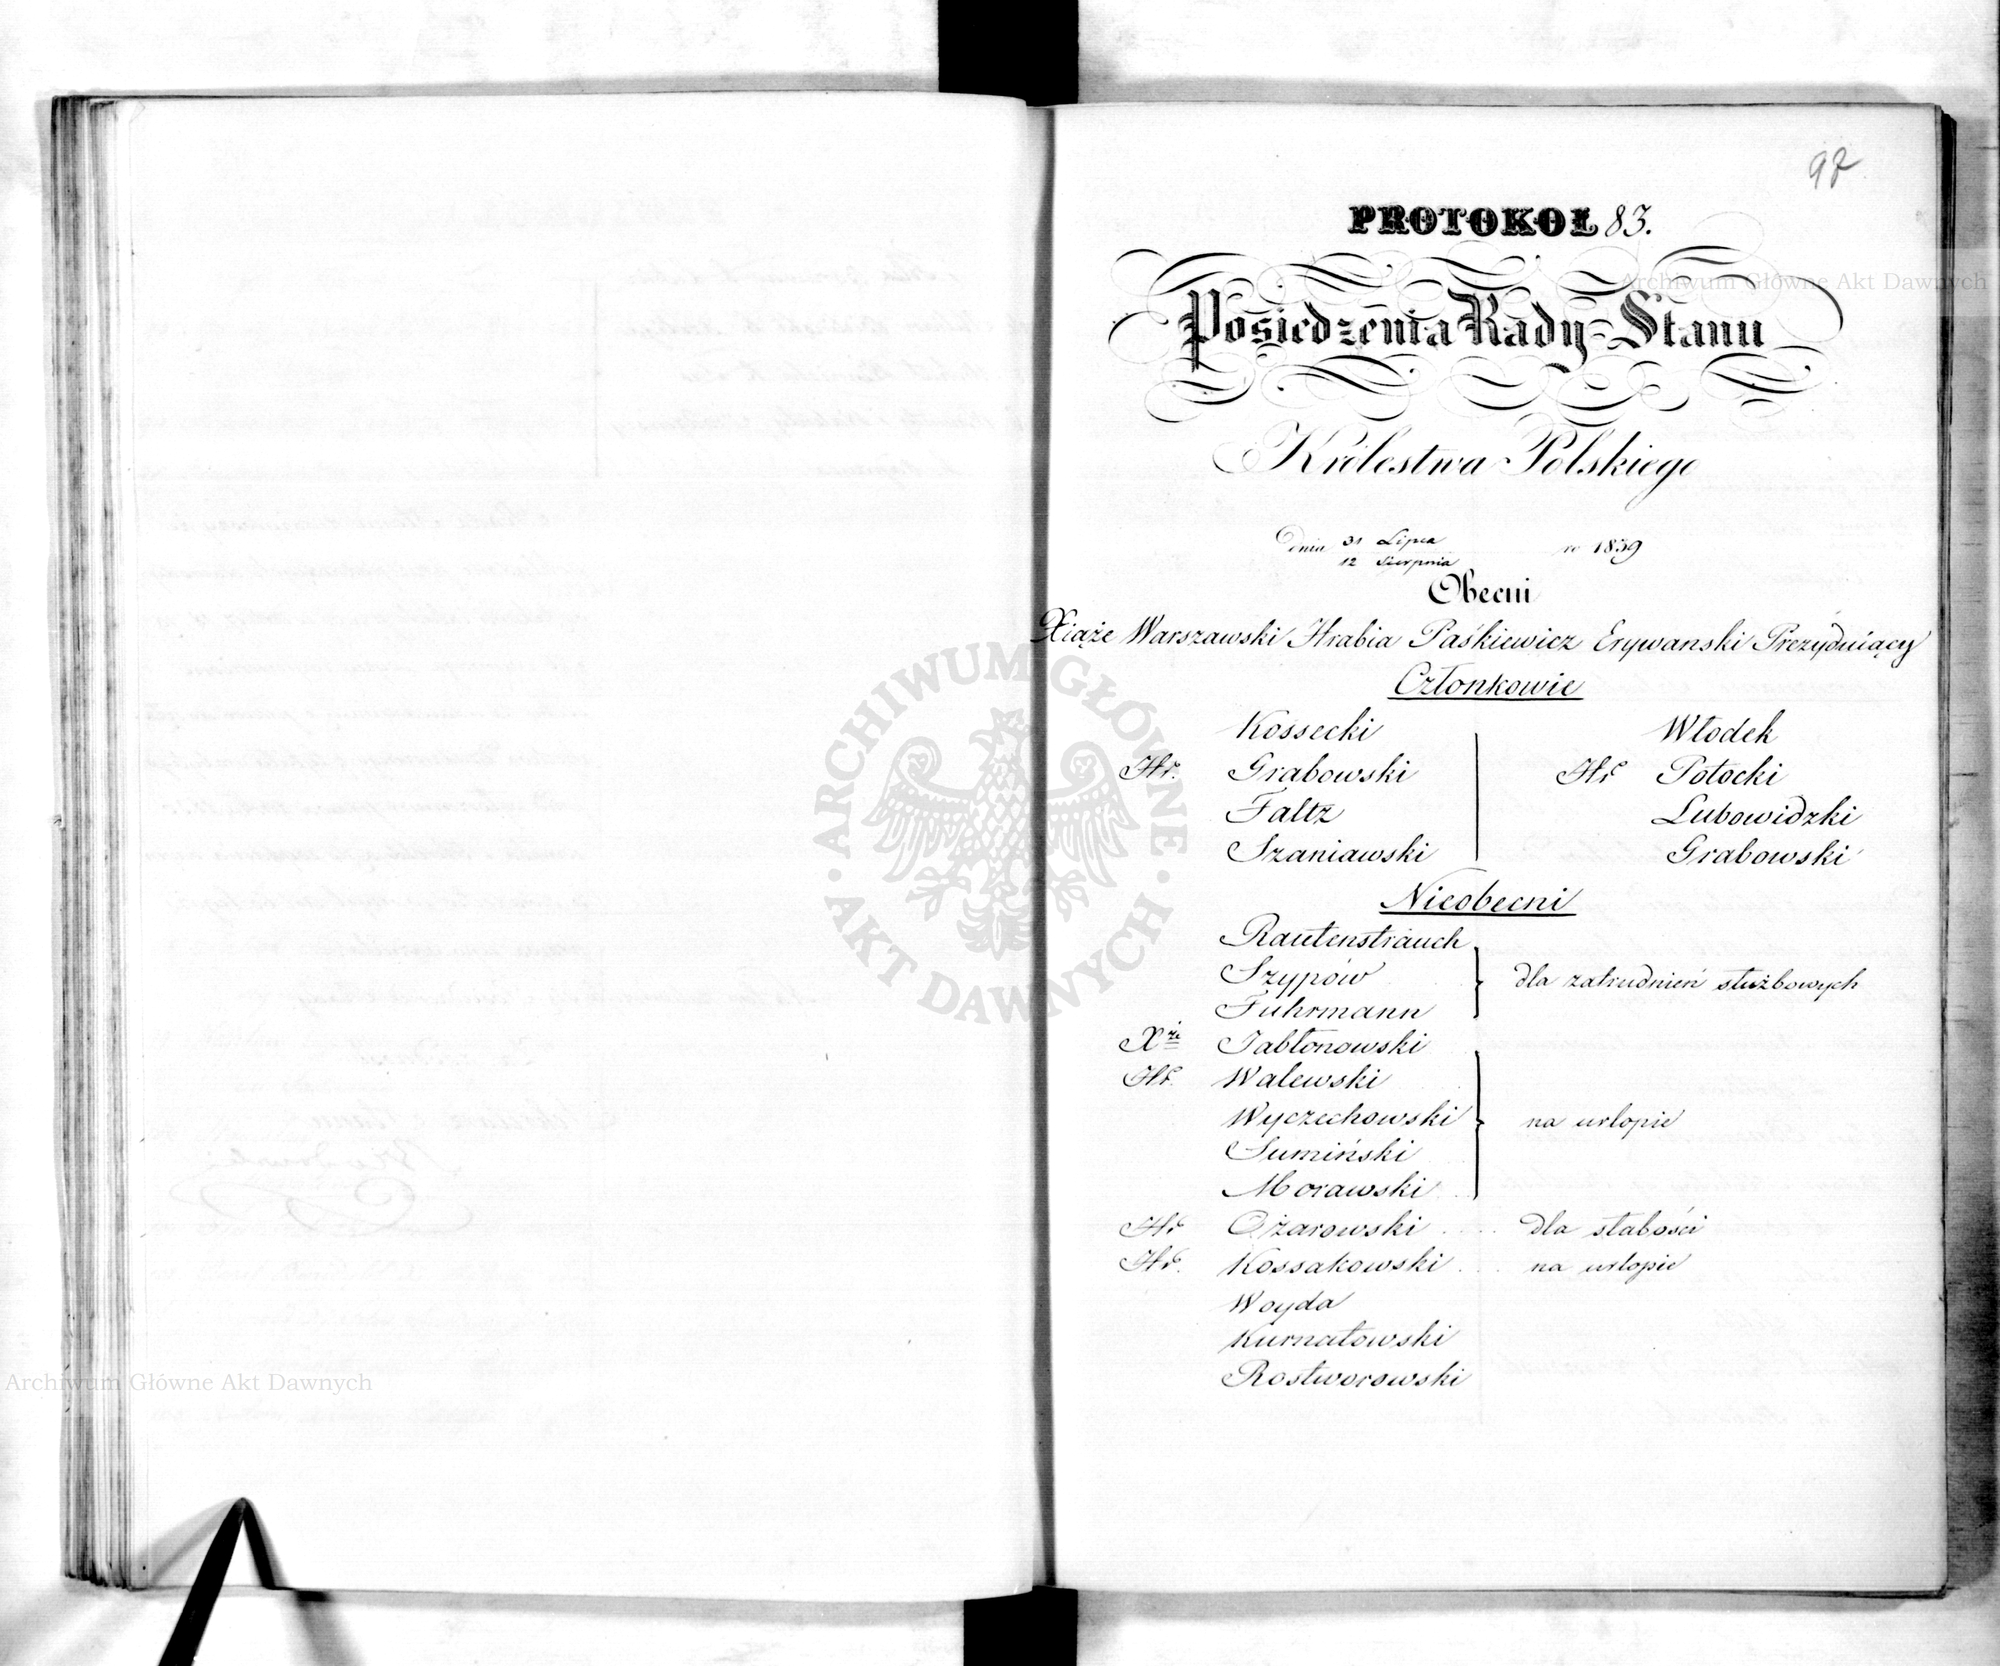 97
PROTOKOŁ 83.
Posiedzenia Rady Stanu
Królestwa Polskiego
dnia 31 Lipca / 12 Sierpnia ro 1839
Obecni
Xiąże Warszawski Hrabia Paśkiewicz Erywanski Prezydniący
Członkowie
Kossecki Włodek
Hr. Grabowski Hr Potocki
Faltz Lubowidzki
Szaniawski Grabowski
Nieobecni
Rautenstrauch
Szypów dla zatrudnień służbowych
Fuhrmann
Xże Jabłonowski
Hr. Walewski
Wyczechowski na urlopie
Sumiński
Morawski
Hr Ożarowski dla słabości
Hr. Kossakowski na urlopie
Woyda
Kurnatowski
Rostworowski
Archiwum Główne Akt Dawnych
ARCHIWUM GŁÓWNE AKT DAWNYCH
Archiwum Główne Akt Dawnych